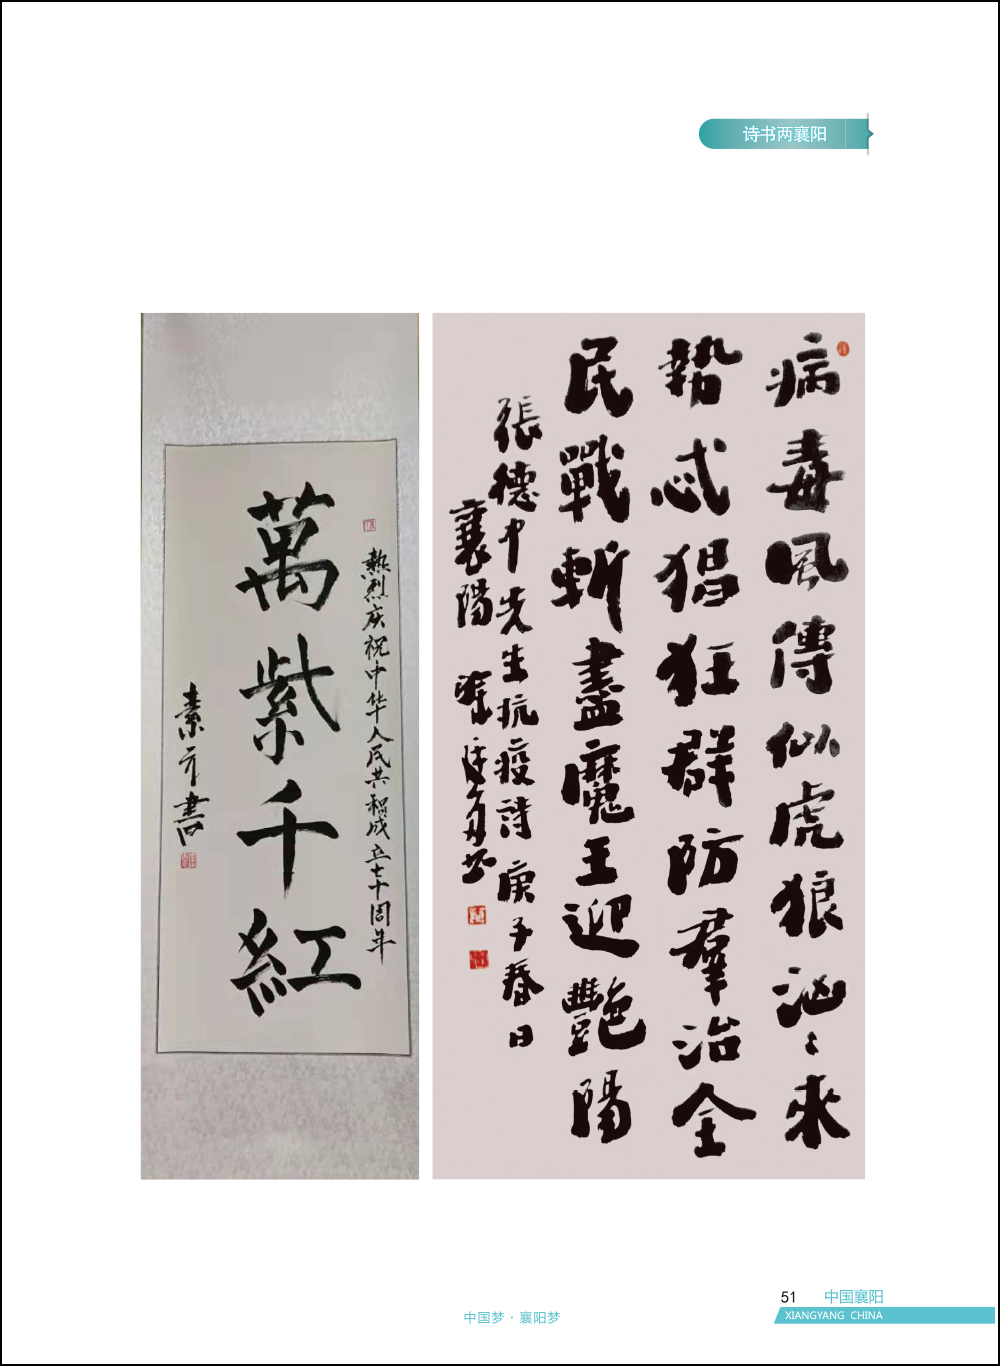 诗书两襄阳
病毒風傳似虎狼汹〻來
勢忒猖狂群防羣治全
民戰斬盡魔王迎艷陽
張德中先生抗疫詩 庚子春日
襄陽
熱烈庆祝中华人民共和成立七十周年
萬紫千紅
素方書
51
中国襄阳
XIANGYANG CHINA
中国梦·襄阳梦